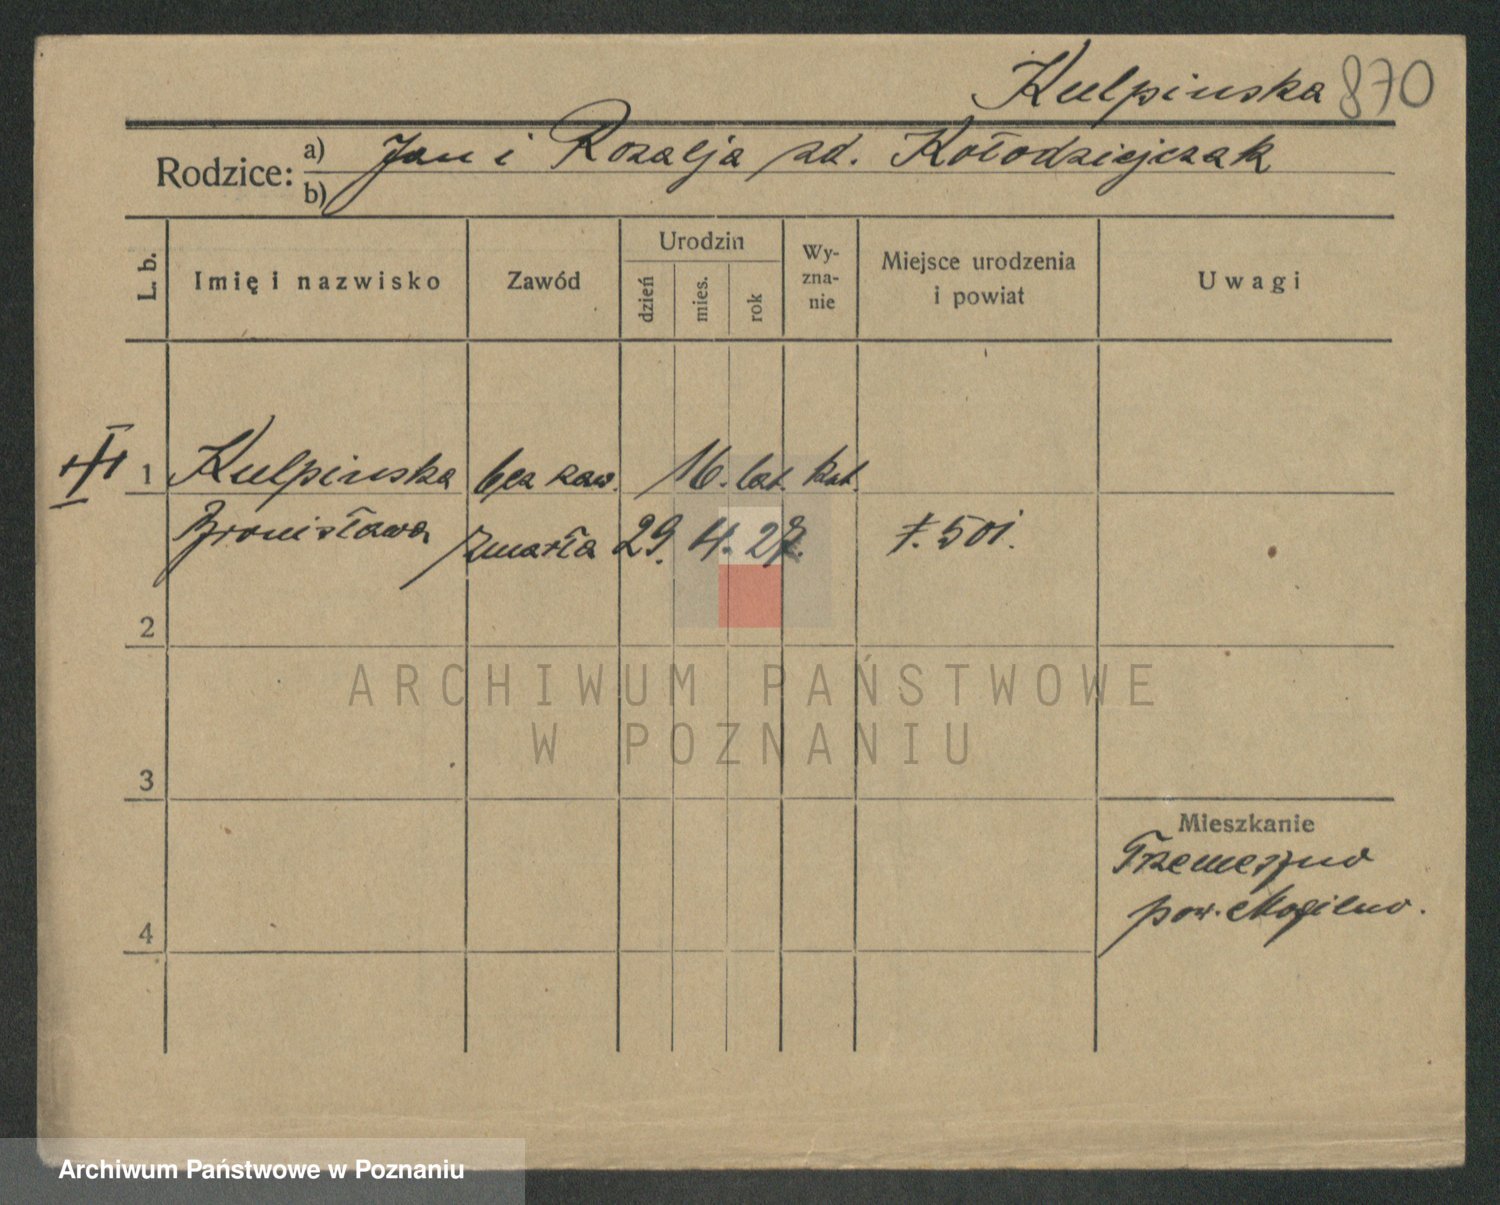 Kulpinska 870
Rodzice: a) Jan i Rozalja zd. Kołodziejczak
b)
L. b. Imię i nazwisko Zawód Urodzin dzień mies. rok Wy-zna-nie Miejsce urodzenia i powiat Uwagi
1 Kulpinska bez zaw. 16. lat. kat.
Bronisława zmarła 29. 4. 27. 501.
2
ARCHIWUM PAŃSTWOWE
W POZNANIU
3
Mieszkanie
Trzemeszno
pow. Mogilno.
4
Archiwum Państwowe w Poznaniu